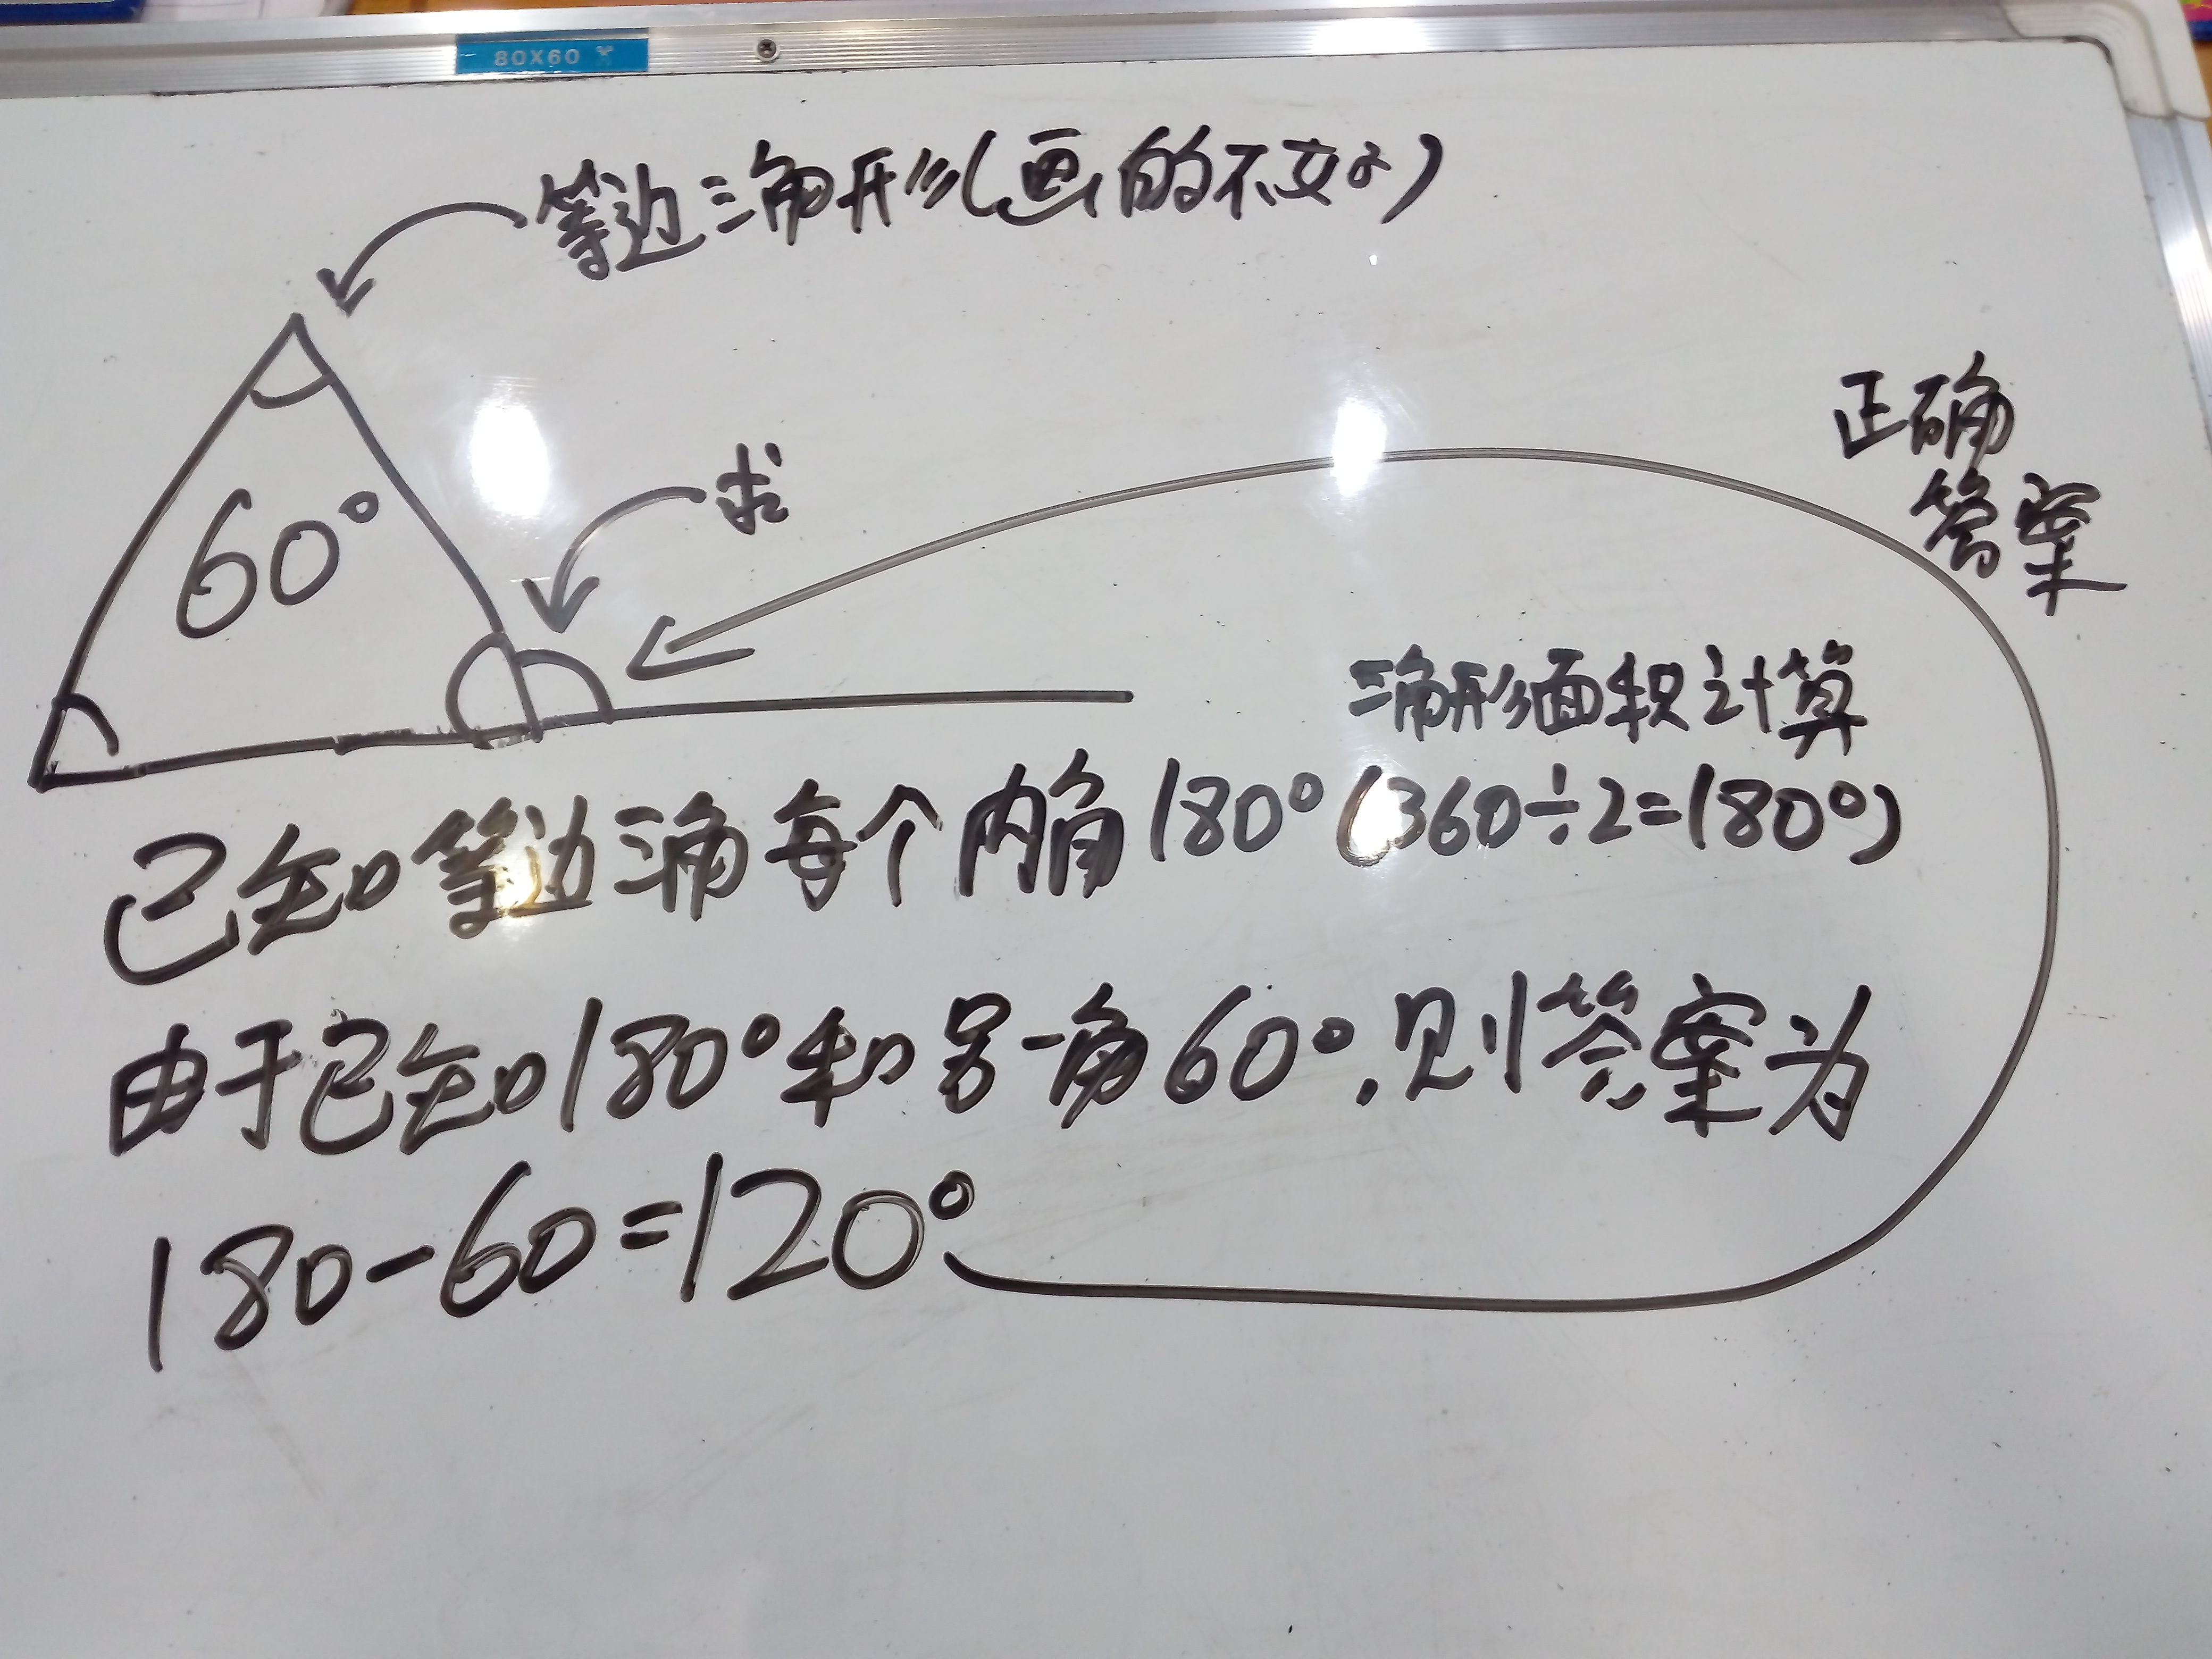 80X60
等边三角形(画的不好)
60°
求
正确
答案
三角形面积计算
已知等边三角每个内角180°(360÷2=180°)
由于已知180°和另一角60°.则答案为
180-60=120°